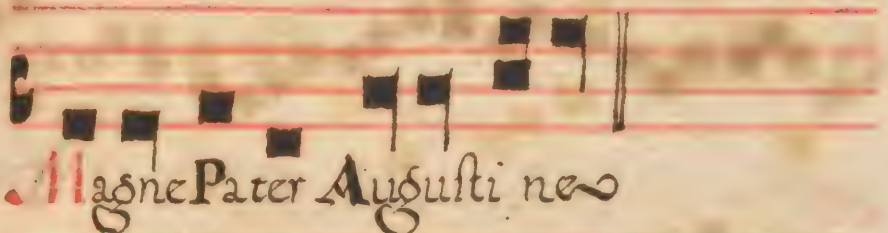 Magne Pater Augustine